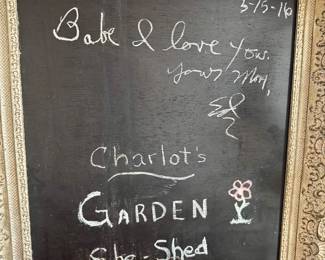 5-15-16
Babe I love you.
yours
Ed
Charlot's
GARDEN
She-Shed